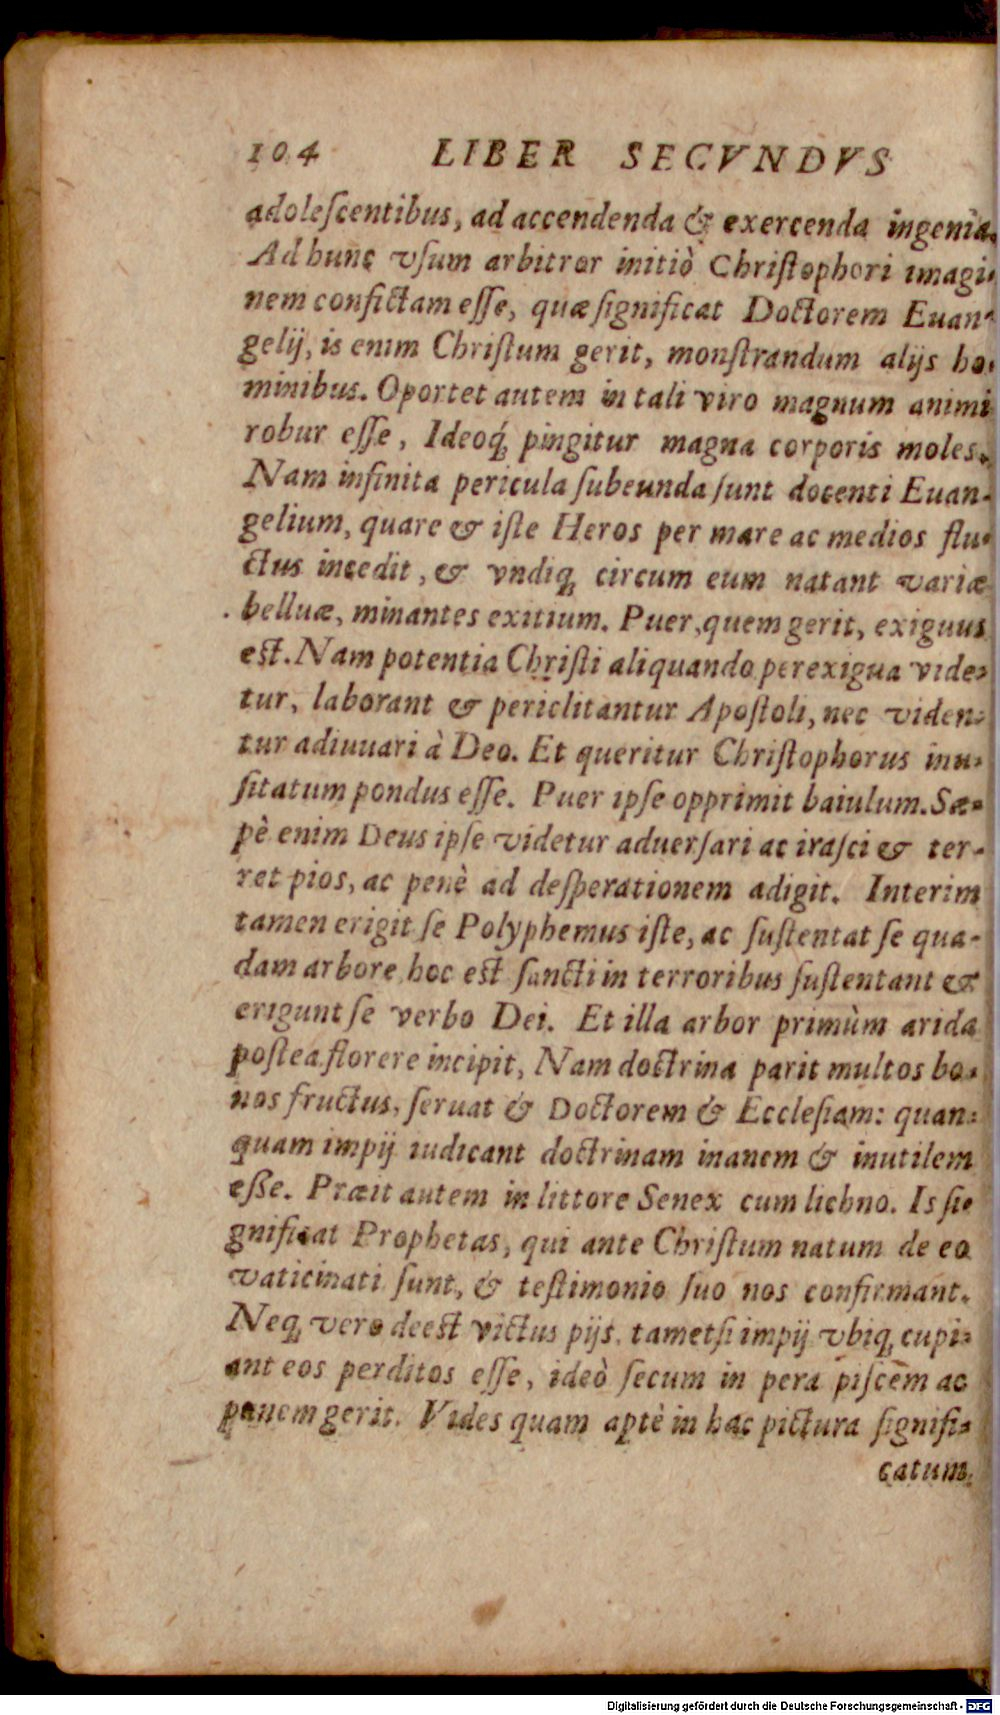 104 LIBER SECVNDVS
adoleſcentibus, ad accendenda & exercenda ingenia.
Ad hunc vſum arbitror initiò Chriſtophori imagi-
nem confictam eſſe, quæ ſignificat Doctorem Euan-
gelij, is enim Chriſtum gerit, monſtrandum alijs ho-
minibus. Oportet autem in tali viro magnum animi
robur eſſe, Ideoq́; pingitur magna corporis moles.
Nam infinita pericula ſubeunda ſunt docenti Euan-
gelium, quare & iſte Heros per mare ac medios flu-
ctus incedit, & vndiq; circum eum natant variæ
belluæ, minantes exitium. Puer, quem gerit, exiguus
est. Nam potentia Chriſti aliquando perexigua vide-
tur, laborant & periclitantur Apoſtoli, nec viden-
tur adiuuari à Deo. Et queritur Chriſtophorus inu-
ſitatum pondus eſſe. Puer ipſe opprimit baiulum. Sæ-
pè enim Deus ipſe videtur aduerſari ac iraſci & ter-
ret pios, ac penè ad deſperationem adigit. Interim
tamen erigit ſe Polyphemus iſte, ac ſuſtentat ſe qua-
dam arbore hoc est ſancti in terroribus ſuſtentant &
erigunt ſe verbo Dei. Et illa arbor primùm arida
poſtea florere incipit, Nam doctrina parit multos bo-
nos fructus, ſeruat & Doctorem & Eccleſiam: quan-
quam impij iudicant doctrinam inanem & inutilem
eſſe. Præit autem in littore Senex cum lichno. Is ſi-
gnificat Prophetas, qui ante Chriſtum natum de eo
vaticinati ſunt, & teſtimonio ſuo nos confirmant.
Neq; vero deest victus pijs, tametſi impij vbiq; cupi-
ant eos perditos eſſe, ideò ſecum in pera piſcem ac
panem gerit. Vides quam aptè in hac pictura ſignifi-
catum
Digitalisierung gefördert durch die Deutsche Forschungsgemeinschaft - DFG